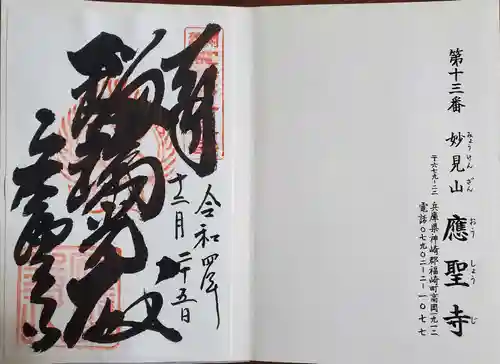 第十三番
妙見山
みょうけんざん
應聖寺
おうしょうじ
〒六七九-二二
兵庫県神崎郡福崎町高岡一九一二
電話〇七九〇-二二-一〇七七
奉拝
令和四年
十二月二十五日
瑠璃光殿
應聖寺